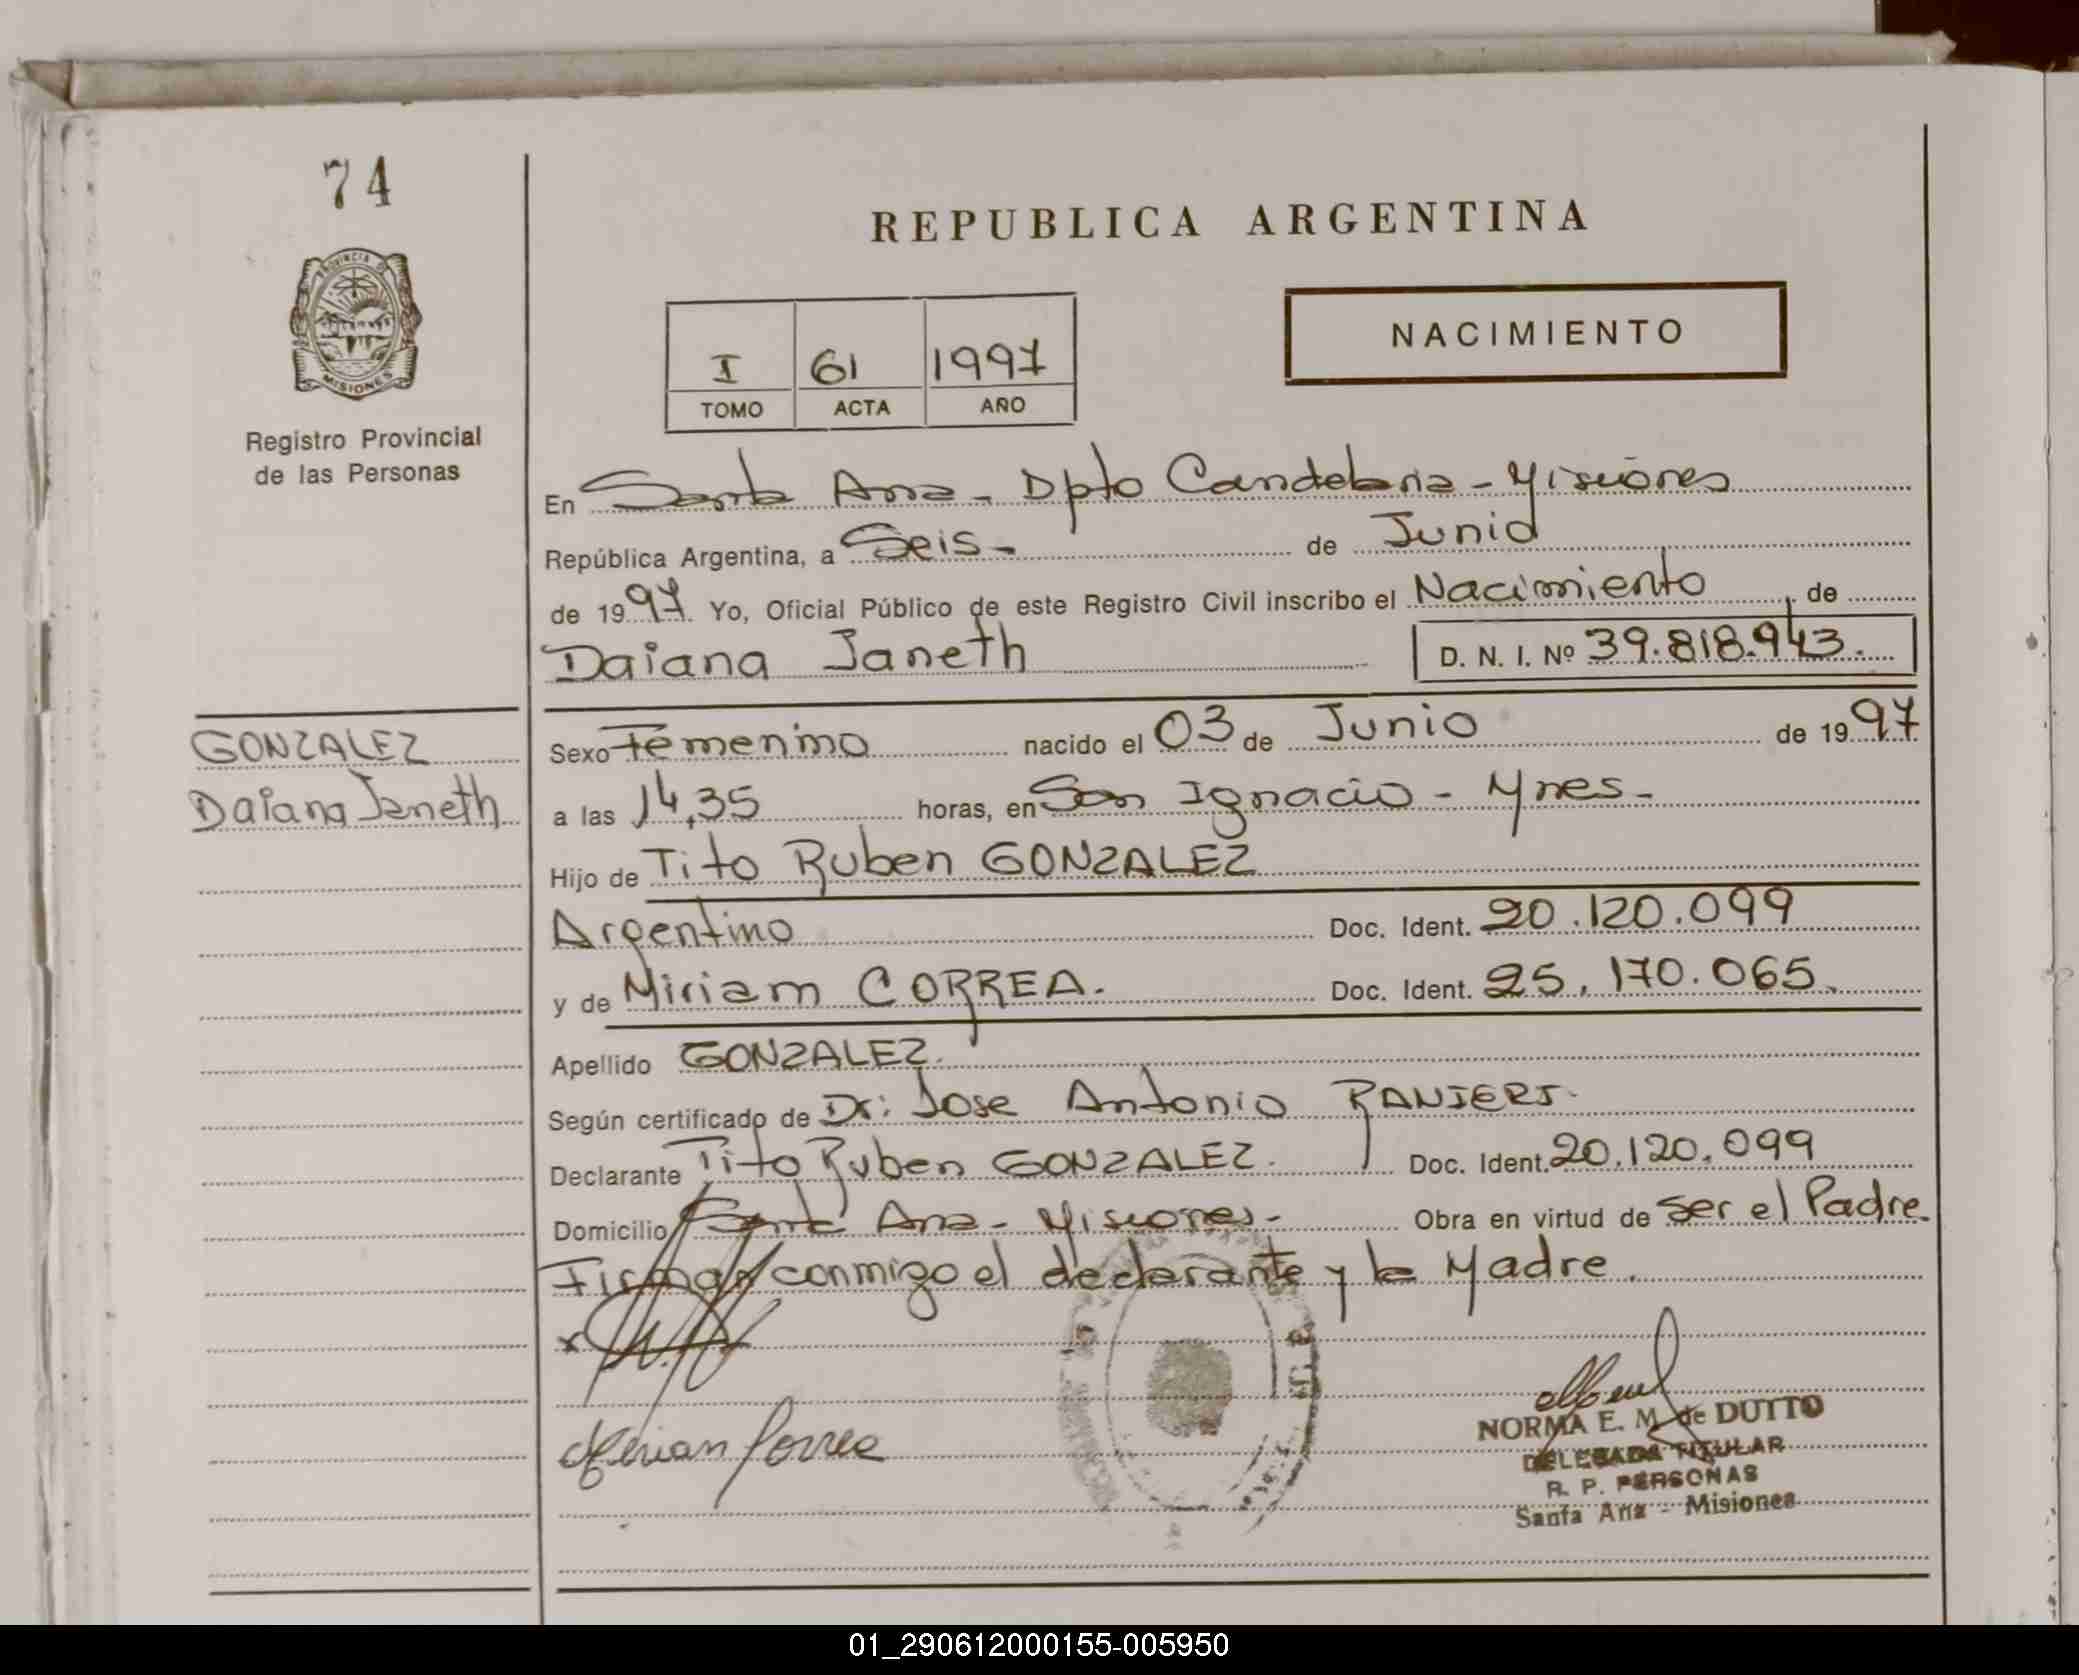 74
PROVINCIA DE
MISIONES
Registro Provincial
de las Personas
REPUBLICA ARGENTINA
I 61 1997
TOMO ACTA AÑO
NACIMIENTO
En Santa Ana - Dpto Candelaria - Misiones
República Argentina, a Seis - de Junio
de 1997 Yo, Oficial Público de este Registro Civil inscribo el Nacimiento, de
Daiana Janeth D. N. I. Nº 39.818.943.
GONZALEZ
Daiana Janeth
Sexo Femenino nacido el 03 de Junio de 1997
a las 14,35 horas, en San Ignacio - Mnes -
Hijo de Tito Ruben GONZALEZ
Argentino Doc. Ident. 20.120.099
y de Miriam CORREA. Doc. Ident. 25.170.065.
Apellido GONZALEZ.
Según certificado de Dr: Jose Antonio RANIERI.
Declarante Tito Ruben GONZALEZ. Doc. Ident. 20.120.099
Domicilio Santa Ana - Misiones - Obra en virtud de ser el Padre.
Firman conmigo el declarante y la Madre.
x
Miriam Correa
NORMA E. M. de DUTTO
DELEGADA TITULAR
R. P. PERSONAS
Santa Ana - Misiones
01_290612000155-005950